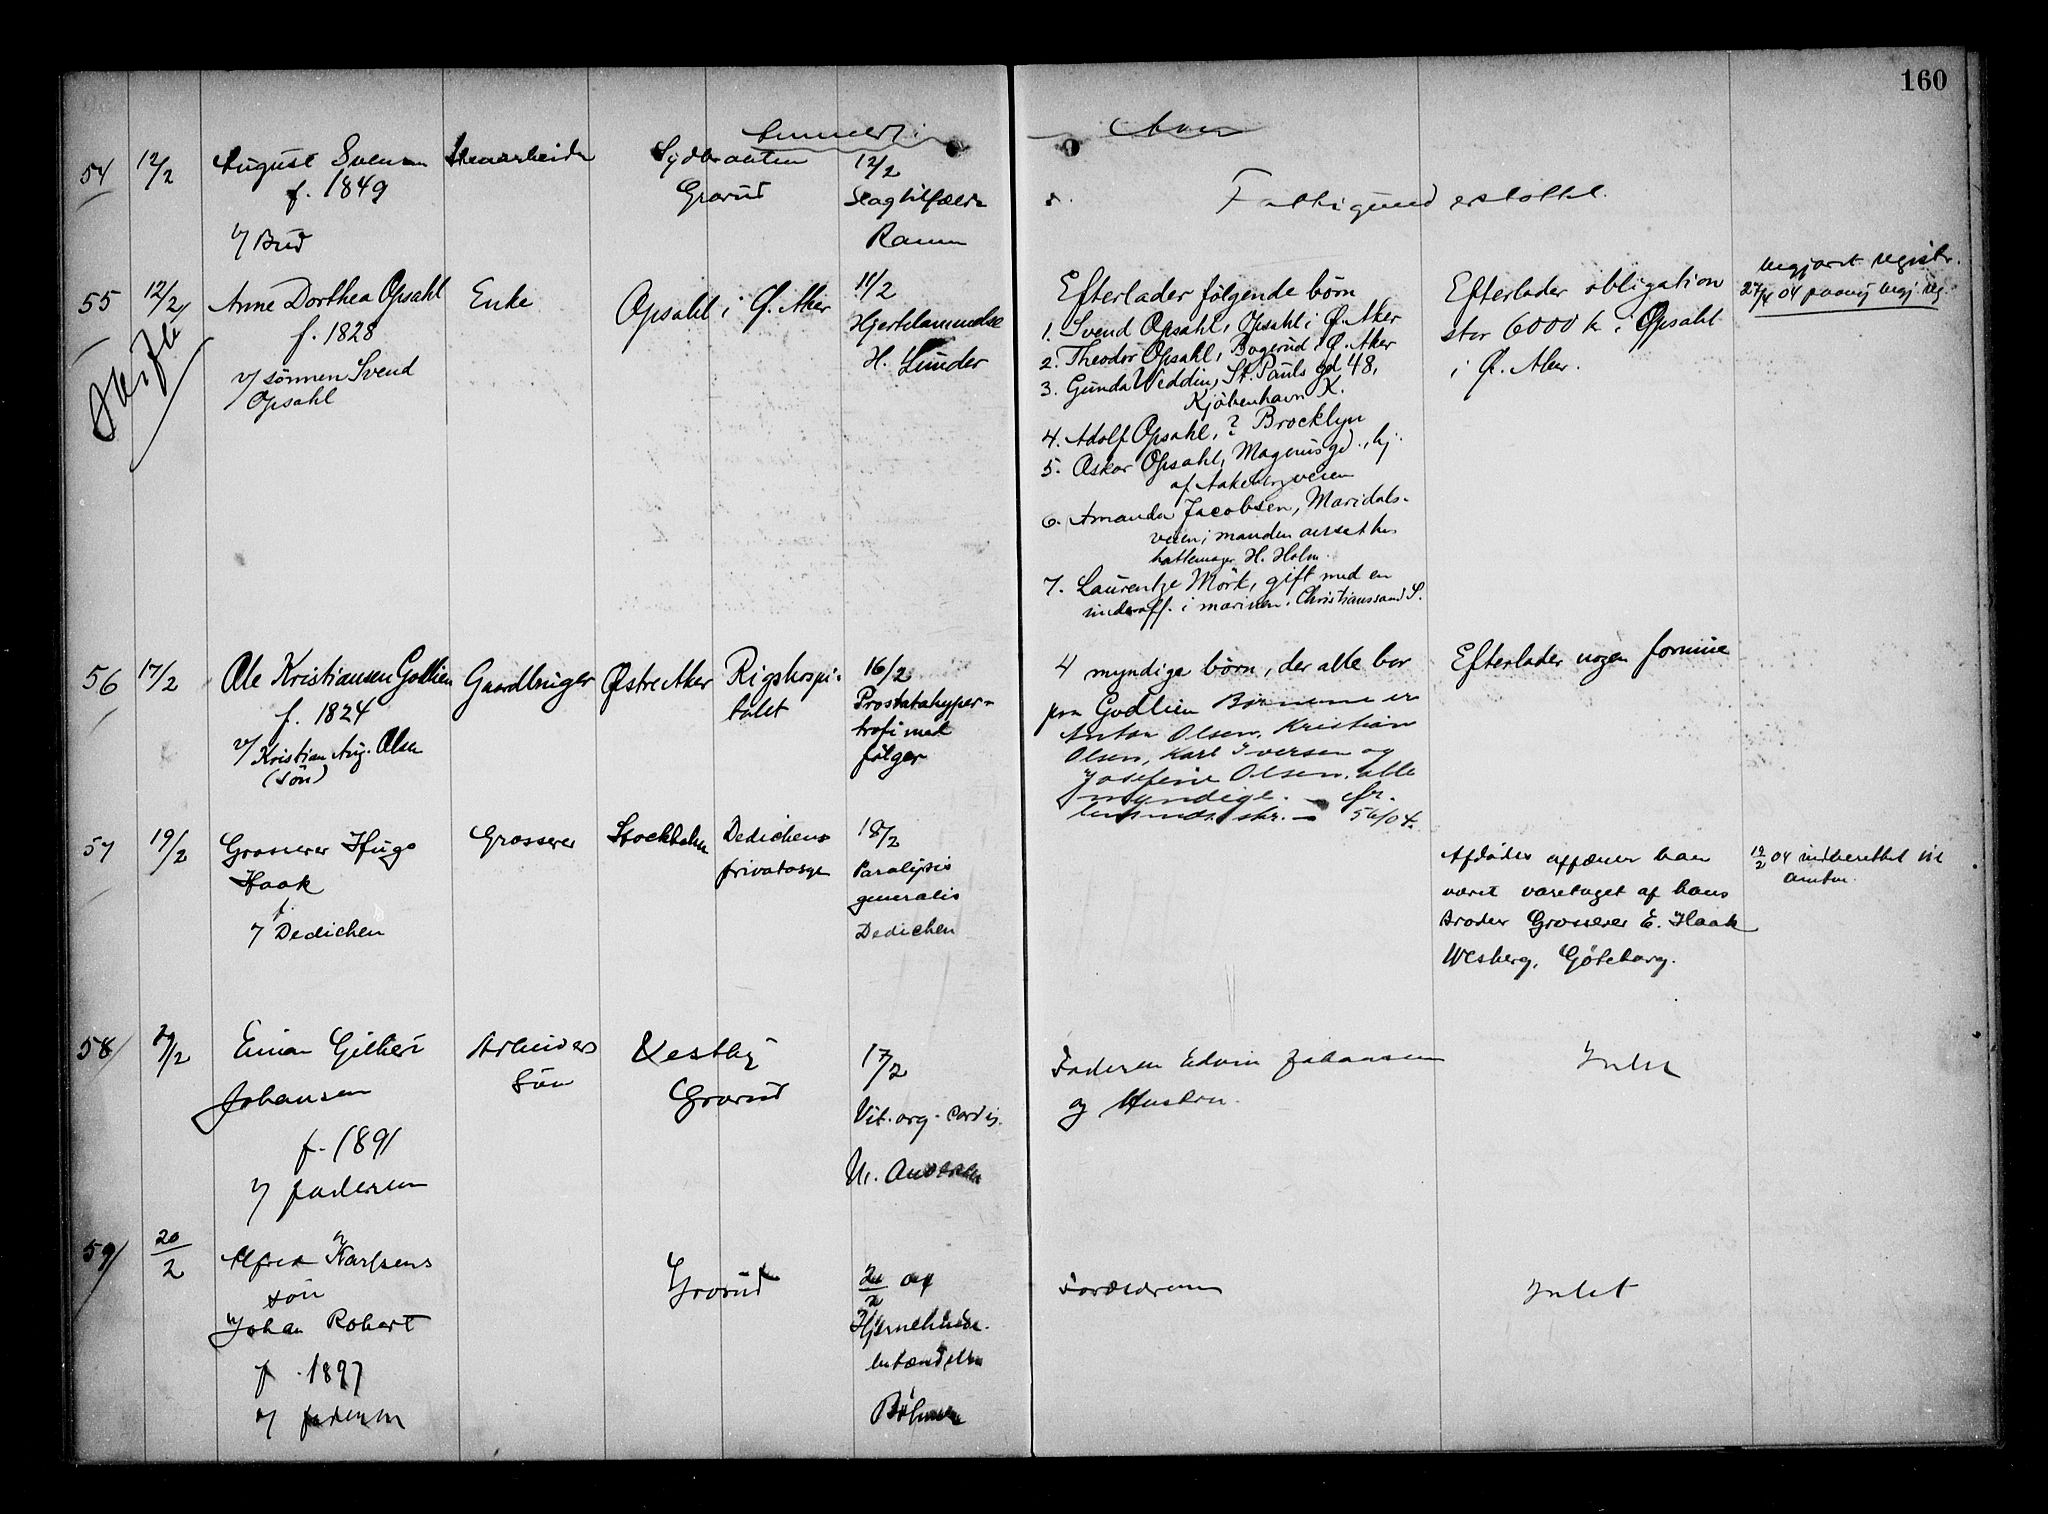 160
54
12/2
August Svensen
f. 1849
v/ Bud
Stenarbeider
Sydbraaten
Grorud
12/2
Slagtilfælde
Ramm
Fattigunderstøttet.
55
12/2
Anne Dorthea Opsahl
f. 1828
v/ sønnen Svend
Opsahl
Enke
Opsahl i Ø. Aker
11/2
Hjertelammelse
H. Lunder
Efterlader følgende børn
1. Svend Opsahl, Opsahl i Ø. Aker
2. Theodor Opsahl, Bogerud i Ø. Aker
3. Gunda Weddin, St. Pauls gd 48,
Kjøbenhavn K.
4. Adolf Opsahl, ? Brocklyn
5. Oskar Opsahl, Magnusgd., hj.
af Aakebergveien
6. Amanda Jacobsen, Maridals-
veien; manden ansat hos
hattemager H. Holm.
7. Laurentze Mörk, gift med en
underoff. i marinen. Christianssand S.
Efterlader obligation
stor 6000 kr i Opsahl
i Ø. Aker.
begjæret registr.
27/4 04 paany begj. reg.
56
17/2
Ole Kristiansen Godlien
f. 1824
v/ Kristian Aug. Olsen
(søn)
Gaardbruger
Østre Aker
Rigshospi-
talet
16/2
Prostatahyper-
trofi med
følger
4 myndige børn, der alle bor
paa Godlien Børnene er
Anton Olsen, Kristian
Olsen, Karl Iversen og
Josefine Olsen, alle
myndige. — cfr.
lensmds. skr. — 56/04.
Efterlader nogen formue
57
19/2
Grosserer Hugo
Haak
f.
v/ Dedichen
Grosserer
Stockholm
Dedichens
privatasyl
18/2
Paralysis
generalis
Dedichen
Afdødes affærer har
været varetaget af hans
broder Grosserer E. Haak
Wesberg, Göteborg.
19/2 04 indberettet til
amtm.
58
Einar Gilbert
Johansen
f. 1891
v/ faderen
Arbeiders
søn
Vestby
Grorud
17/2
Vit. org. cordis.
N. Andersen
Faderen Edvin Johansen
og Hustru.
Intet
59
20/2
Alfred Karlsens
søn
Johan Robert
f. 1897
v/ faderen
Grorud
20/2 af
Hjernehinde-
betændelse
Böhmer
Forældrene
Intet